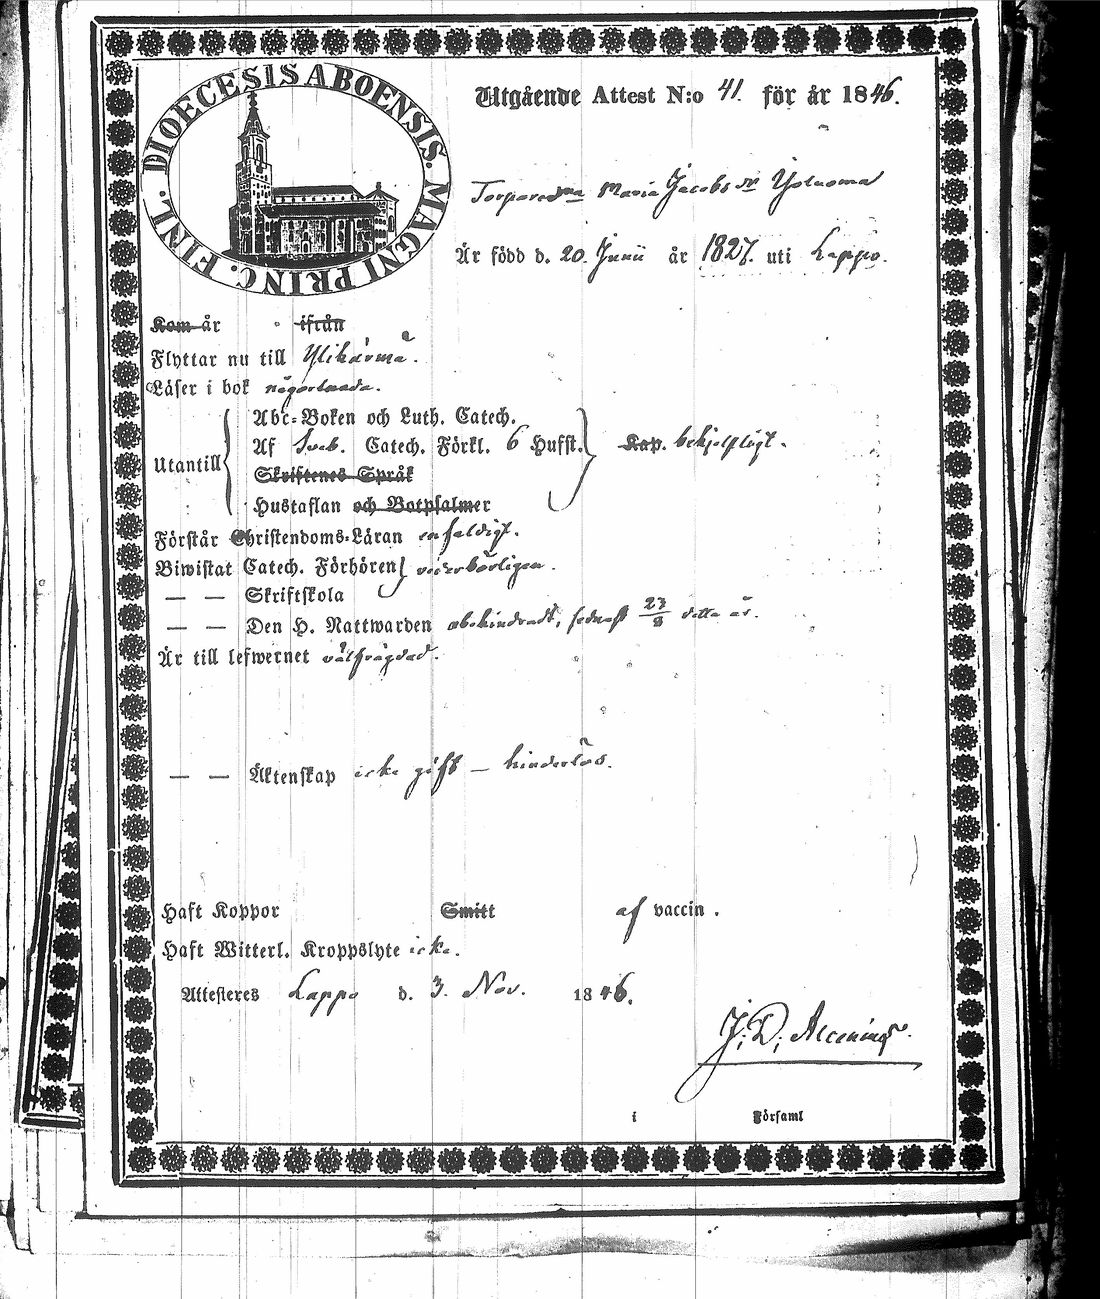 DIOECESIS ABOENSIS. MAGNI PRINC. FINL.
Utgående Attest N:o 41. för år 1846.
Maria Jacobs dr
Är född d. 20. Junii år 1827. uti Lappo.
Kom år ifrån
Flyttar nu till Ylihärmä.
Läser i bok någorlunda.
Utantill
Abc-Boken och Luth. Catech.
Af Sveb. Catech. Förkl. 6 Hufst. Kap. behjelpligt.
Skriftenes Språk
Hustaflan och Botpsalmer
Förstår Christendoms-Läran enfaldigt.
Biwistat Catech. Förhören vederbörligen.
— — Skriftskola
— — Den H. Nattwarden obehindradt, sednast 23/8 detta år.
Är till lefwernet välfrägdad.
— — Äktenskap icke gift — hinderlös.
Haft Koppor Smitt af vaccin.
Haft Witterl. Kroppslyte icke.
Attesteres Lappo d. 3. Nov. 1846.
J. D. Alcenius.
i Församl